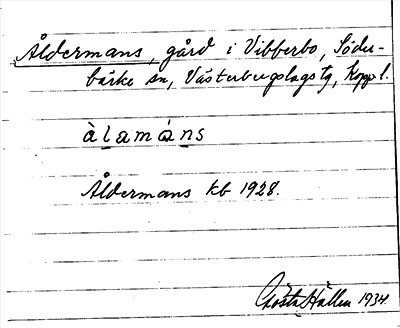 Åldermans, gård i Vibberbo, Söder-
bärke sn, Västerbergslags tg, Kopp l.
àlamáns
Åldermans kb 1928.
Gösta Hallén 1934